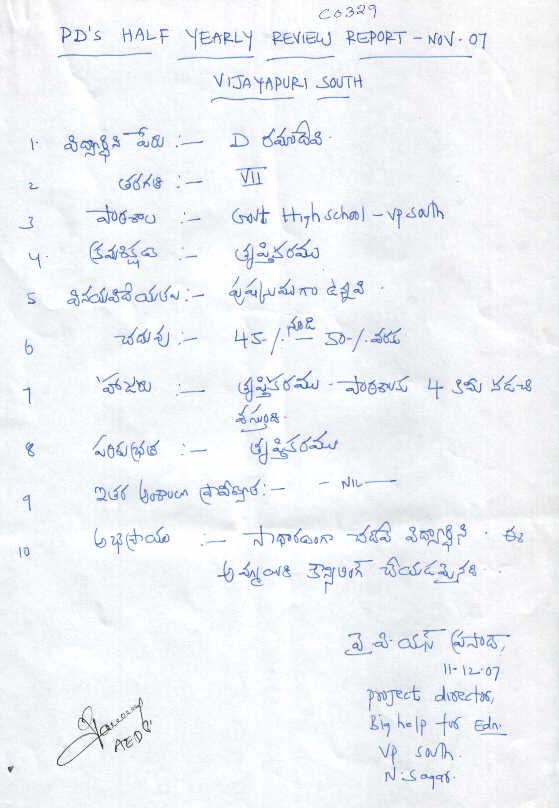 C0329
PD'S HALF YEARLY REVIEW REPORT - NOV. 07
VIJAYAPURI SOUTH
1. విద్యార్థిని పేరు :- D రమాదేవి.
2 తరగతి :- VII
3 పాఠశాల :- Govt High school - vp south
4. క్రమశిక్షణ :- తృప్తికరము
5 వినయవిధేయతలు :- పుష్కలముగా ఉన్నవి.
6 చదువు :- 45-/. నుండి 50-/. వరకు
7 హాజరు :- తృప్తికరము. పాఠశాలకు 4 కిమీ నడచి
వస్తుంది.
8 పరిశుభ్రత :- తృప్తికరము
9 ఇతర అంశాలలో ప్రావీణ్యత :- - NIL -
10 అభిప్రాయం :- సాధారణంగా చదివే విద్యార్థిని. ఈ
అమ్మాయికి కౌన్సిలింగ్ చేయడమైనది.
వై. పి. యస్ ప్రసాద్,
11-12-07
project director,
Big help for Edn.
VP south.
N. Sagar.
AEDC